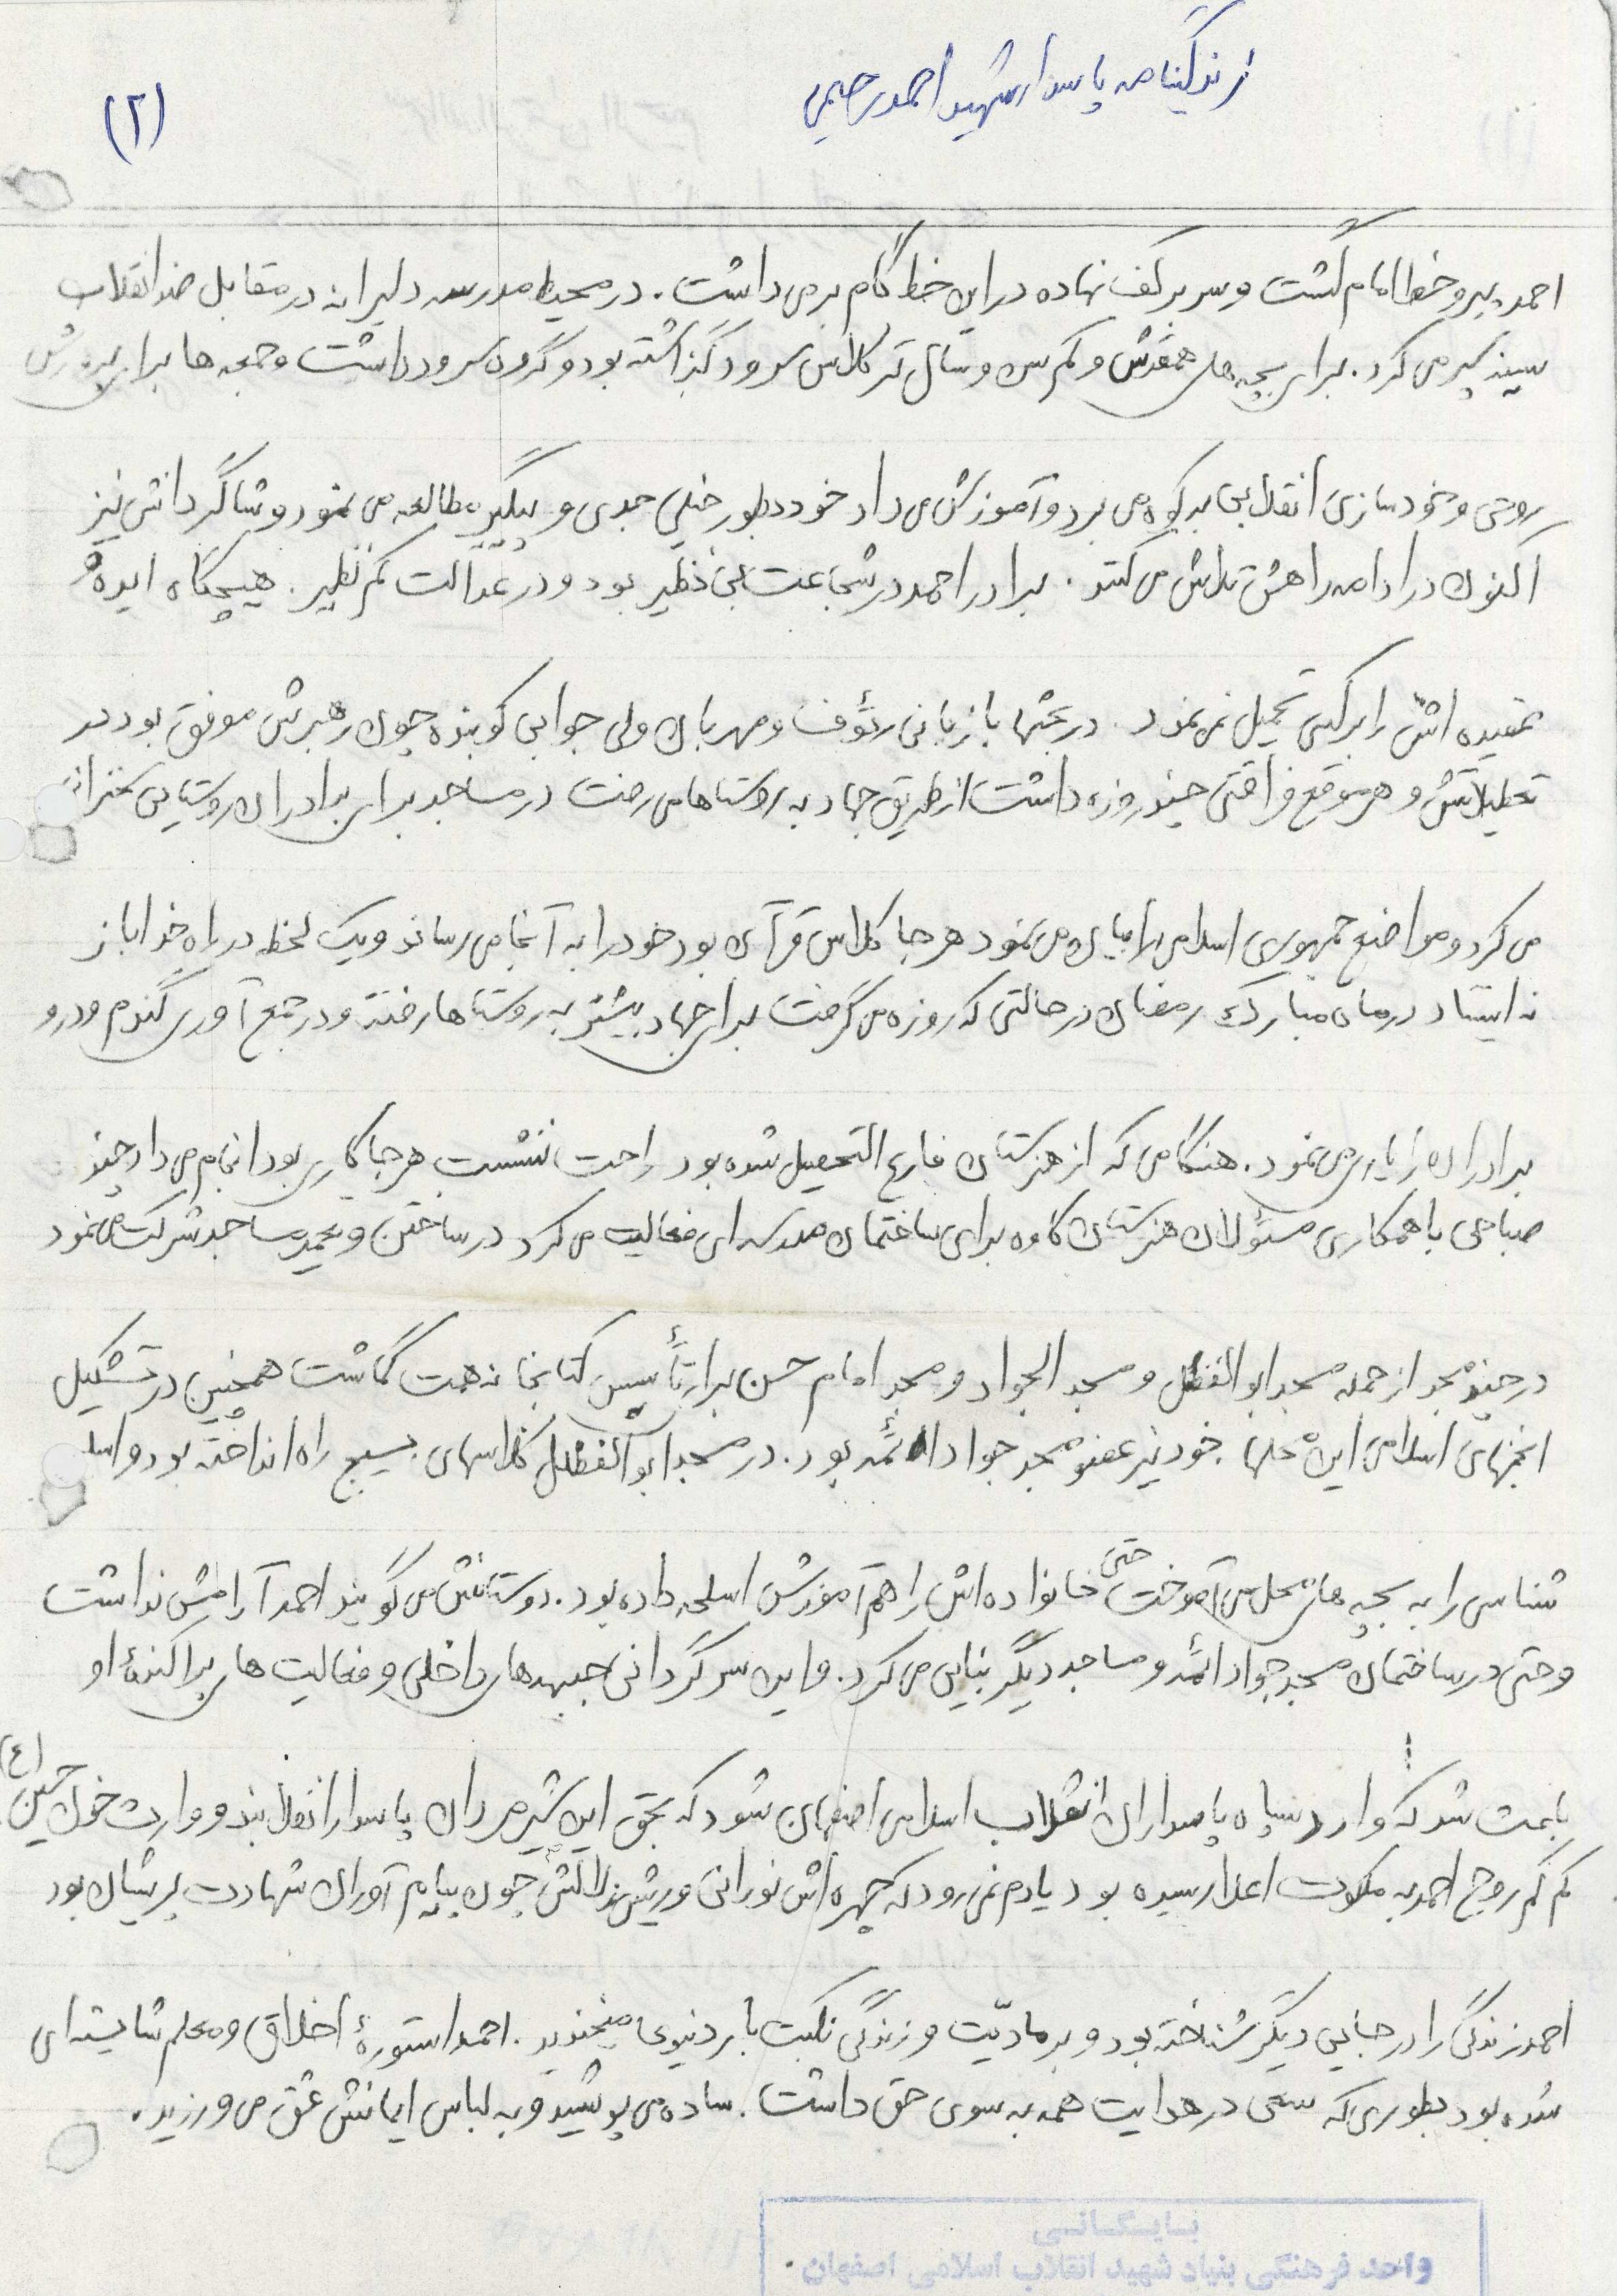 زندگینامه پاسدار شهید احمد رحیمی
(۲)
احمد پیرو خط امام گشت و سر بر کف نهاده در این خط گام بر می داشت. در محیط مدرسه دلیرانه در مقابل ضد انقلاب
سینه سپر می کرد. برای بچه های همقدش و کم سن و سال تر کلاس سرود گذاشته بود و گروه سرود داشت و جمعه ها برای پرورش
روحی و خودسازی انقلابی به کوه می برد و آموزش می داد خود بطور خیلی جدی و پیگیر مطالعه می نمود و شاگردانش نیز
اکنون در ادامه راهش تلاش می کنند. برادر احمد در شجاعت بی نظیر بود و در عدالت کم نظیر. هیچگاه ایده و
عقیده اش را بر کسی تحمیل نمی نمود. در بحثها با زبانی رئوف و مهربان ولی جوابی کوبنده چون رهبرش موفق بود در
تعطیلاتش و هر موقع فراقتی چند روزه داشت از طریق جهاد به روستاها می رفت در مساجد برای برادران روستایی سخنرانی
می کرد و مواضع جمهوری اسلامی را بیان می نمود هر جا کلاس قرآن بود خود را به آنجا می رساند و یک لحظه در راه خدا باز
نه ایستاد در ماه مبارک رمضان در حالتی که روزه می گرفت برای جهاد بیشتر به روستاها رفته و در جمع آوری گندم و درو
برادران را یاری می نمود. هنگامی که از هنرستان فارغ التحصیل شده بود راحت ننشست هر جا کاری بود انجام می داد چند
صباحی با همکاری مسئولان هنرستان کاوه برای ساختمان مدرسه ای فعالیت می کرد در ساختن و تعمیر مساجد شرکت می نمود
در چند مسجد از جمله مسجد ابوالفضل و مسجد الجواد و مسجد امام حسن برای تأسیس کتابخانه همت گماشت همچنین در تشکیل
انجمنهای اسلامی این محلها. خود نیز عضو مسجد جواد الائمه بود. در مسجد ابوالفضل کلاسهای بسیج راه انداخته بود و اسلحه
شناسی را به بچه های محل می آموخت حتی خانواده اش را هم آموزش اسلحه داده بود. دوستانش می گویند احمد آرامش نداشت
و حتی در ساختمان مسجد جواد ائمه و مساجد دیگر بنایی می کرد. و این سرگردانی جبهه های داخلی و فعالیت های پراکندۀ او
باعث شد که وارد سپاه پاسداران انقلاب اسلامی اصفهان شود که بحق این شیرمردان پاسدار انقلابند و وارث خون حسین (ع)
کم کم روح احمد به ملکوت اعلا رسیده بود یادم نمی رود که چهره اش نورانی و ریش زلالش چون پیام آوران شهادت پریشان بود
احمد زندگی را در جایی دیگر شناخته بود و بر مادیّت و زندگی نکبت بار دنیوی میخندید. احمد استورۀ اخلاق و معلم شایسته ای
شده بود بطوری که سعی در هدایت همه به سوی حق داشت. ساده می پوشید و به لباس ایمانش عشق می ورزید.
بایگانی
واحد فرهنگی بنیاد شهید انقلاب اسلامی اصفهان